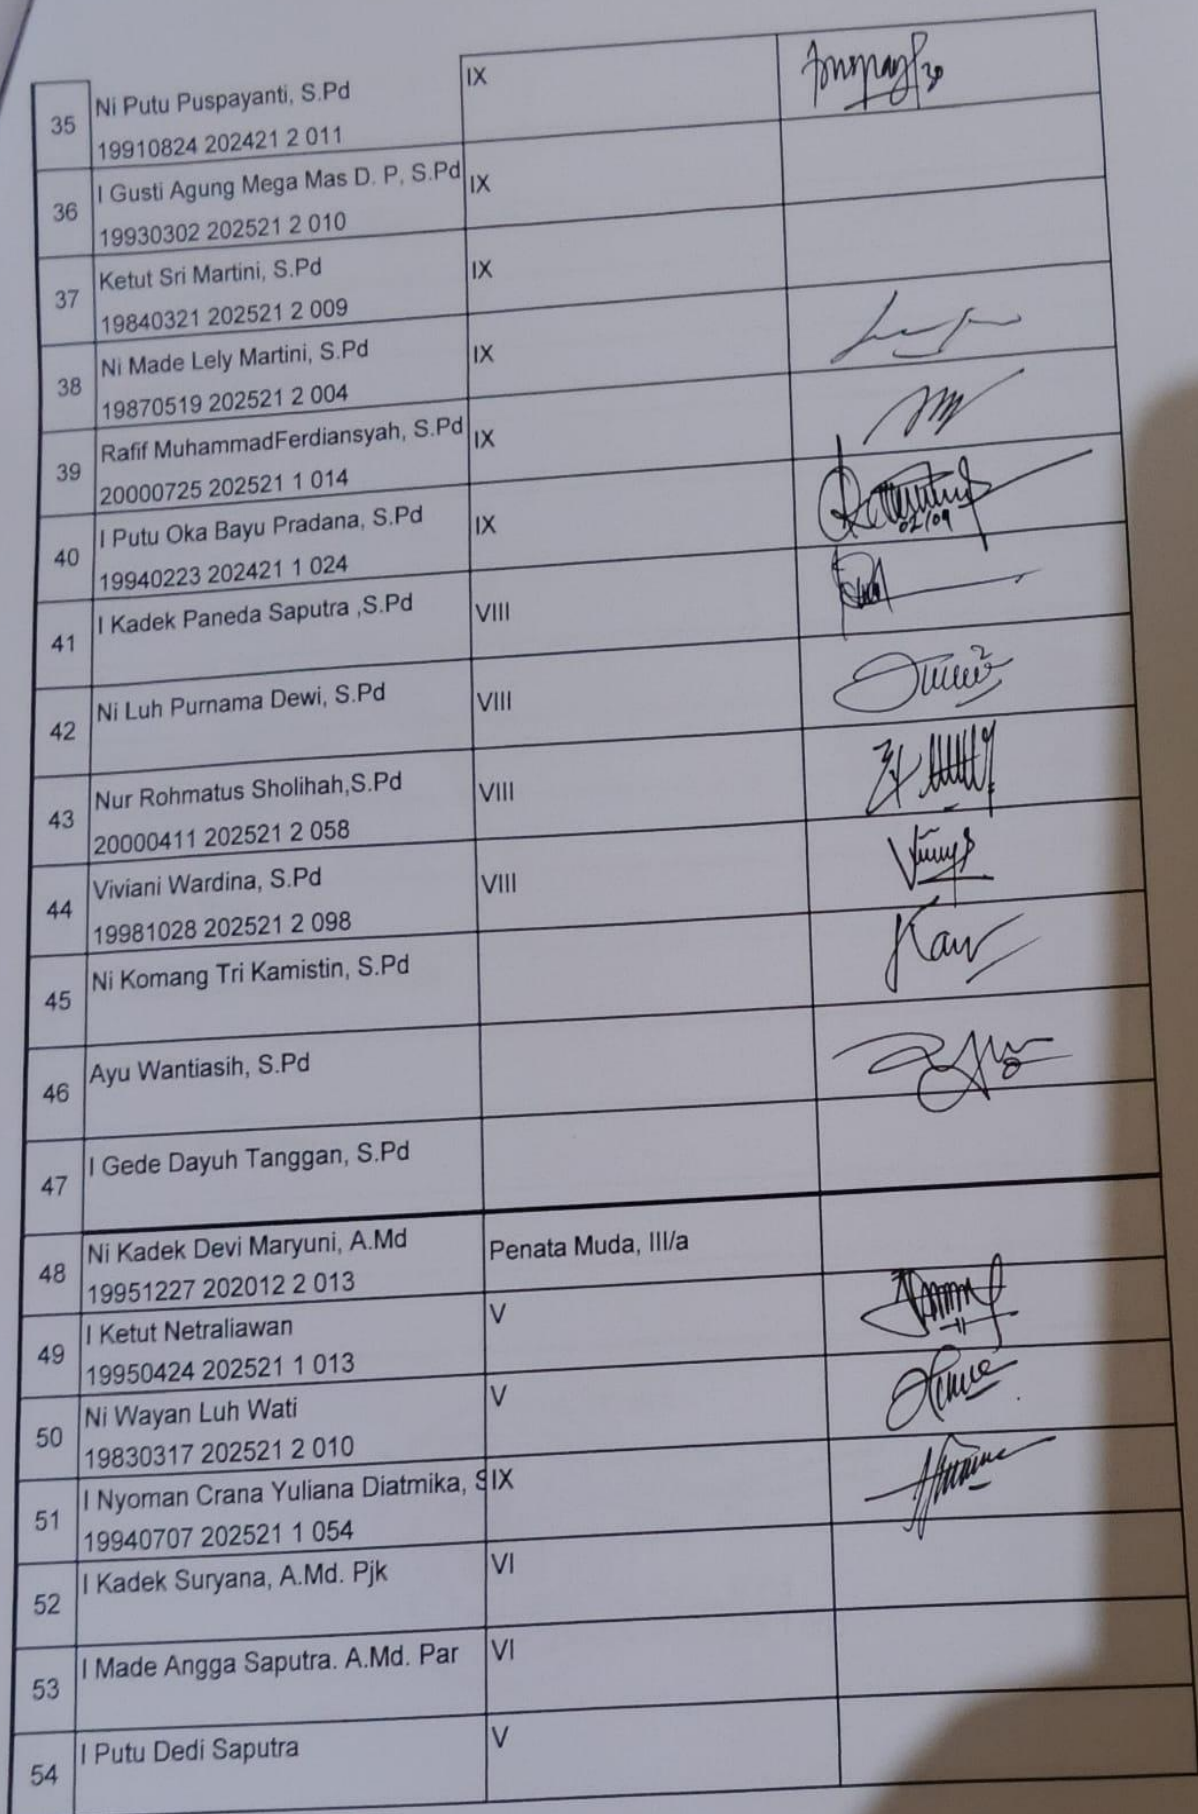 35
Ni Putu Puspayanti, S.Pd
19910824 202421 2 011
IX
36
I Gusti Agung Mega Mas D. P, S.Pd
19930302 202521 2 010
IX
37
Ketut Sri Martini, S.Pd
19840321 202521 2 009
IX
38
Ni Made Lely Martini, S.Pd
19870519 202521 2 004
IX
39
Rafif MuhammadFerdiansyah, S.Pd
20000725 202521 1 014
IX
40
I Putu Oka Bayu Pradana, S.Pd
19940223 202421 1 024
IX
02/09
41
I Kadek Paneda Saputra ,S.Pd
VIII
42
Ni Luh Purnama Dewi, S.Pd
VIII
43
Nur Rohmatus Sholihah,S.Pd
20000411 202521 2 058
VIII
44
Viviani Wardina, S.Pd
19981028 202521 2 098
VIII
45
Ni Komang Tri Kamistin, S.Pd
46
Ayu Wantiasih, S.Pd
47
I Gede Dayuh Tanggan, S.Pd
48
Ni Kadek Devi Maryuni, A.Md
19951227 202012 2 013
Penata Muda, III/a
49
I Ketut Netraliawan
19950424 202521 1 013
V
50
Ni Wayan Luh Wati
19830317 202521 2 010
V
51
I Nyoman Crana Yuliana Diatmika, S
19940707 202521 1 054
IX
52
I Kadek Suryana, A.Md. Pjk
VI
53
I Made Angga Saputra. A.Md. Par
VI
54
I Putu Dedi Saputra
V